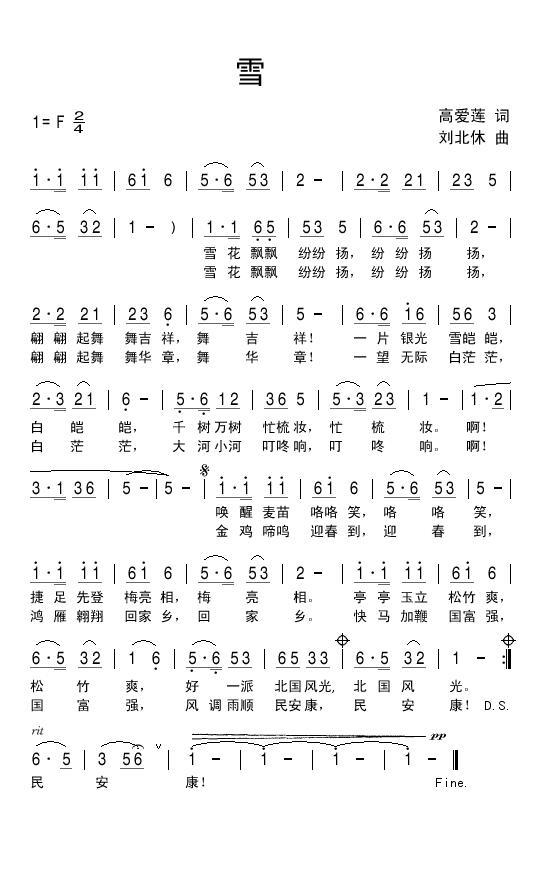 雪
1=F 2/4
高爱莲 词
刘北休 曲
1·1 11 | 61 6 | 5·6 53 | 2 - | 2·2 21 | 23 5 |
6·5 32 | 1 - ) | 1·1 65 | 53 5 | 6·6 53 | 2 - |
雪 花 飘飘 纷纷 扬， 纷 纷 扬 扬，
雪 花 飘飘 纷纷 扬， 纷 纷 扬 扬，
2·2 21 | 23 6 | 5·6 53 | 5 - | 6·6 16 | 56 3 |
翩 翩 起舞 舞吉 祥， 舞 吉 祥！ 一 片 银光 雪皑 皑，
翩 翩 起舞 舞华 章， 舞 华 章！ 一 望 无际 白茫 茫，
2·3 21 | 6 - | 5·6 12 | 36 5 | 5·3 23 | 1 - | 1·2 |
白 皑 皑， 千 树 万树 忙梳 妆， 忙 梳 妆。 啊！
白 茫 茫， 大 河 小河 叮咚 响， 叮 咚 响。 啊！
3·1 36 | 5 - | 5 - | 1·1 11 | 61 6 | 5·6 53 | 5 - |
唤 醒 麦苗 咯咯 笑， 咯 咯 笑，
金 鸡 啼鸣 迎春 到， 迎 春 到，
1·1 11 | 61 6 | 5·6 53 | 2 - | 1·1 11 | 61 6 |
捷 足 先登 梅亮 相， 梅 亮 相。 亭 亭 玉立 松竹 爽，
鸿 雁 翱翔 回家 乡， 回 家 乡。 快 马 加鞭 国富 强，
6·5 32 | 1 6 | 5·6 53 | 65 33 | 6·5 32 | 1 - :|
松 竹 爽， 好 一派 北国 风光， 北 国 风 光。
国 富 强， 风 调 雨顺 民安 康， 民 安 康！ D.S.
rit pp
6·5 | 3 56 | 1 - | 1 - | 1 - | 1 - |
民 安 康！ Fine.